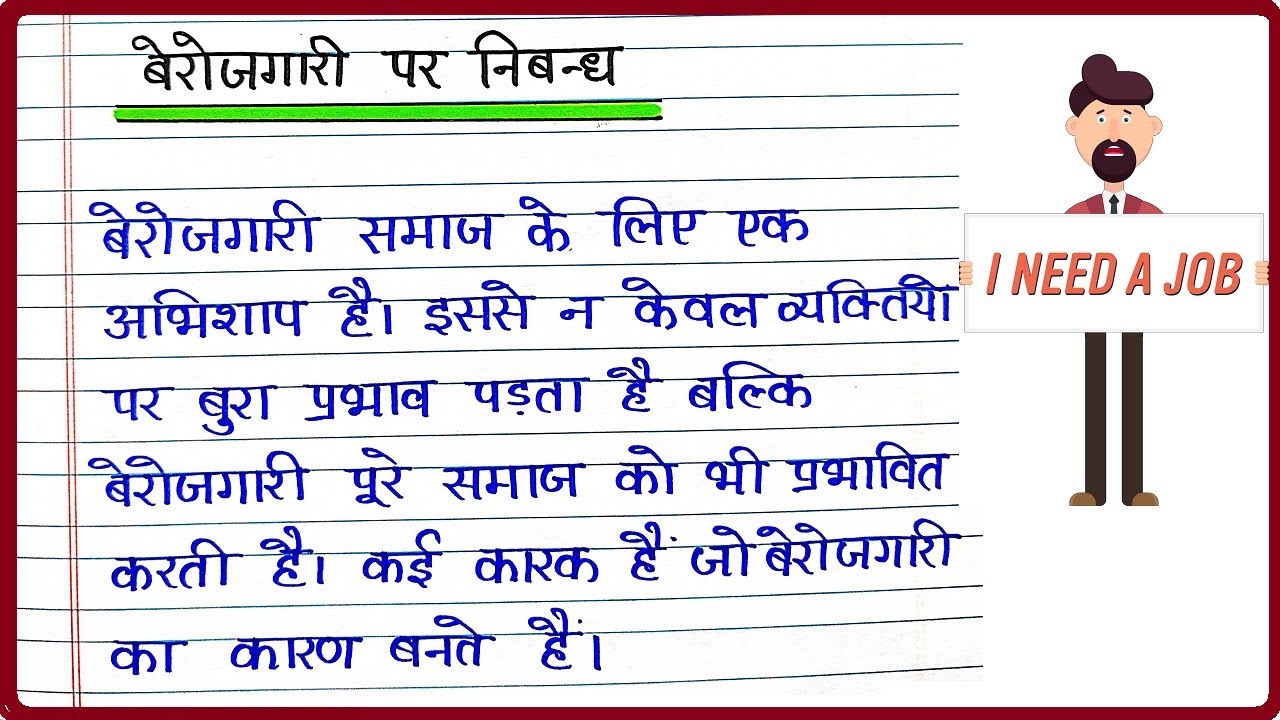 बेरोजगारी पर निबन्ध
बेरोजगारी समाज के लिए एक
अभिशाप है। इससे न केवल व्यक्तियो
पर बुरा प्रभाव पड़ता है बल्कि
बेरोजगारी पूरे समाज को भी प्रभावित
करती है। कई कारक हैं जो बेरोजगारी
का कारण बनते हैं।
I NEED A JOB